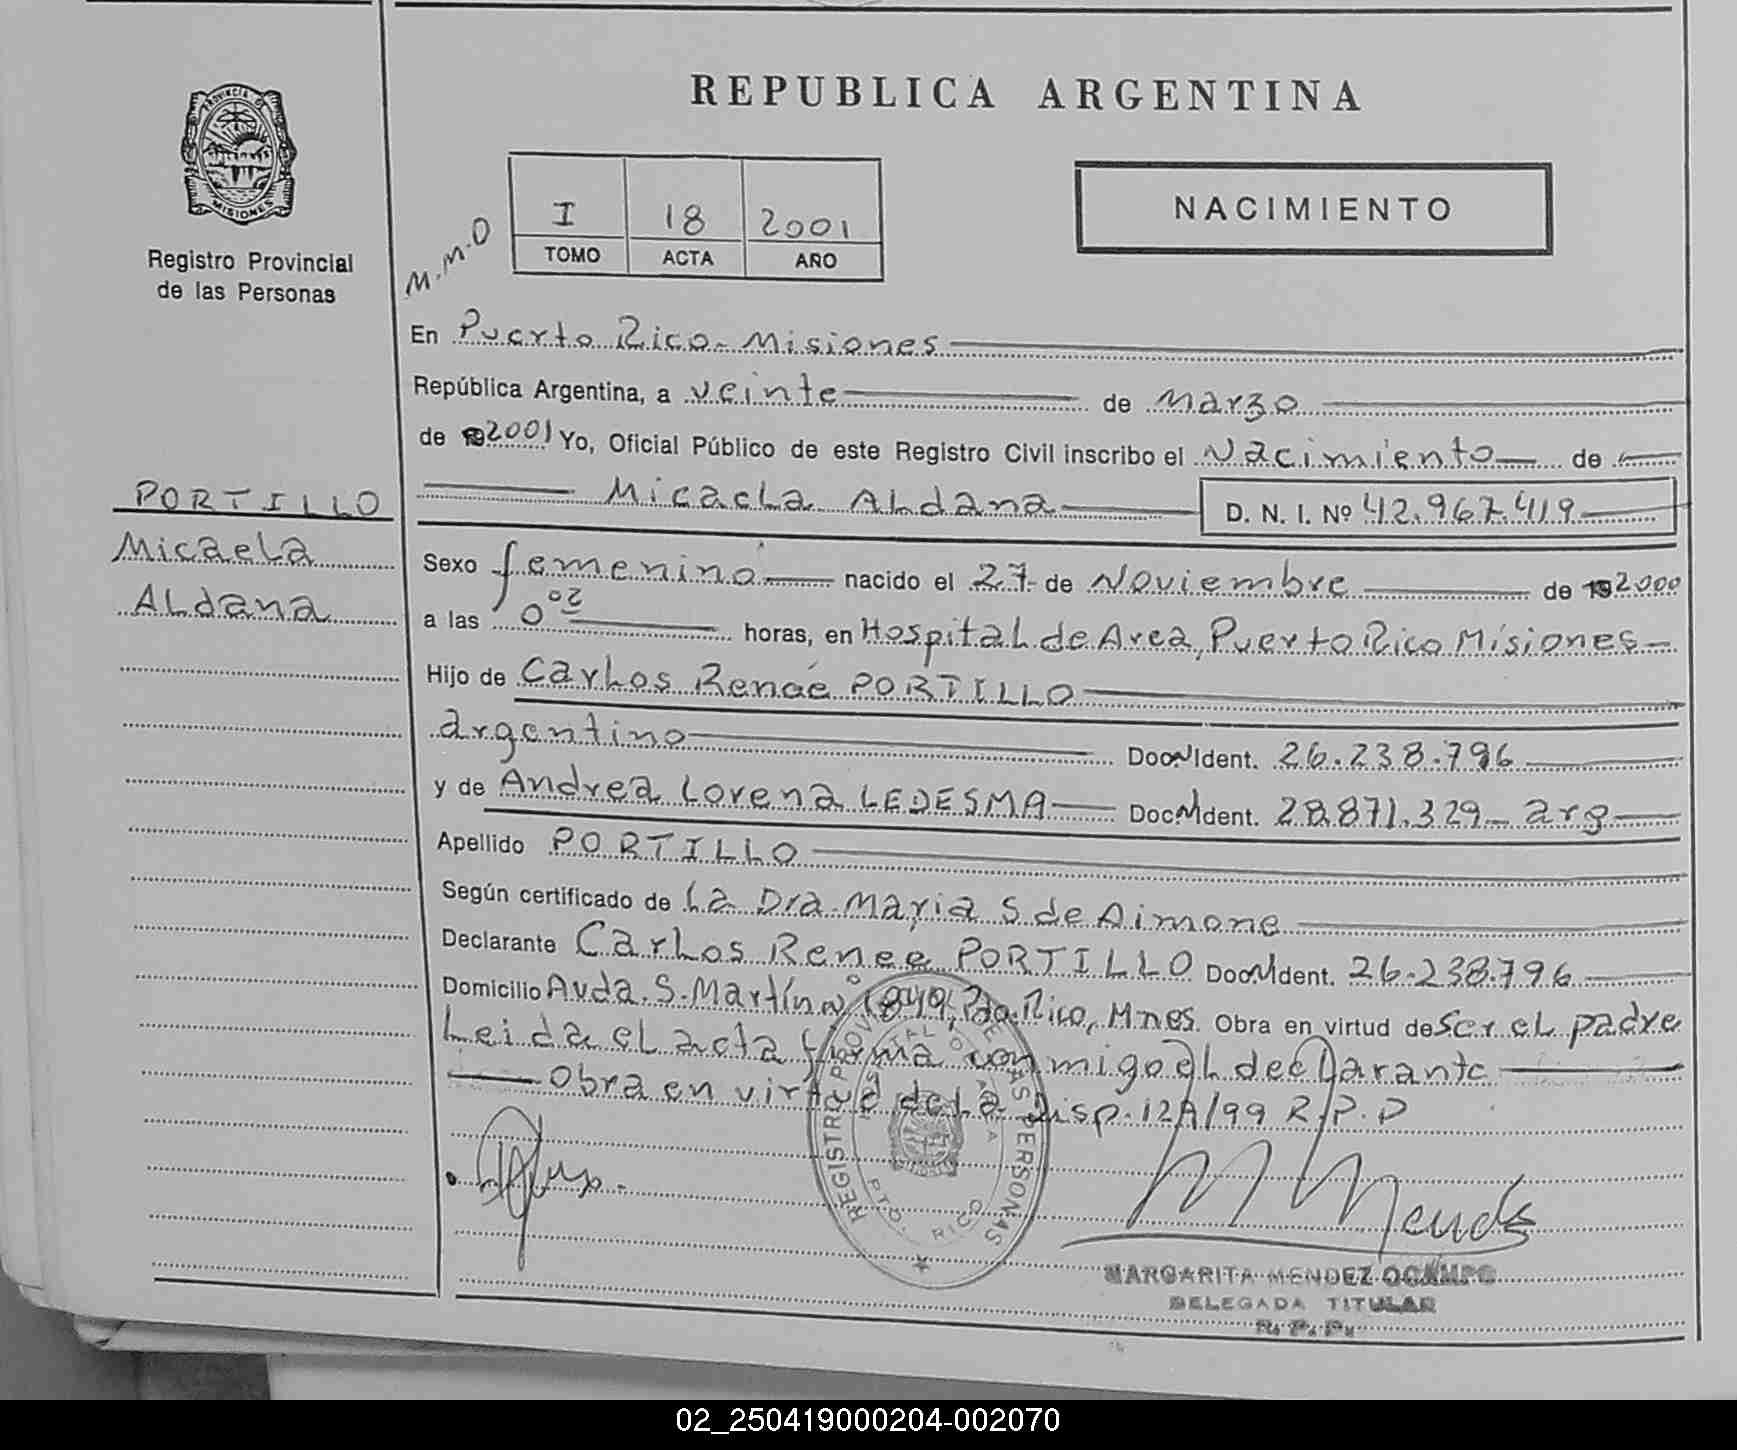 REPUBLICA ARGENTINA
PROVINCIA DE MISIONES
Registro Provincial
de las Personas
M.M.O
I 18 2001
TOMO ACTA AÑO
NACIMIENTO
En Puerto Rico- Misiones
República Argentina, a veinte de Marzo
de 2001 Yo, Oficial Público de este Registro Civil inscribo el Nacimiento de
Micaela Aldana D. N. I. Nº 42.967.419
PORTILLO
Micaela
Aldana
Sexo femenino nacido el 27 de Noviembre de 2000
a las 0 02 horas, en Hospital de Area, Puerto Rico Misiones
Hijo de Carlos Renee PORTILLO
argentino Doc. Ident. 26.238.796
y de Andrea Lorena LEDESMA Doc. Ident. 28.871.329- arg
Apellido PORTILLO
Según certificado de la Dra. Maria S de Aimone
Declarante Carlos Renee PORTILLO Doc. Ident. 26.238.796
Domicilio Avda. S. Martín Nº 1849, Pto. Rico, Mnes. Obra en virtud de ser el padre
Leida el acta firma conmigo el declarante
Obra en virtud de la Disp. 12A/99 R.P.P
REGISTRO PROVINCIAL DE LAS PERSONAS
HOSPITAL DE AREA
PTO. RICO
MARGARITA MENDEZ OCAMPO
DELEGADA TITULAR
R. P. P.
02_250419000204-002070